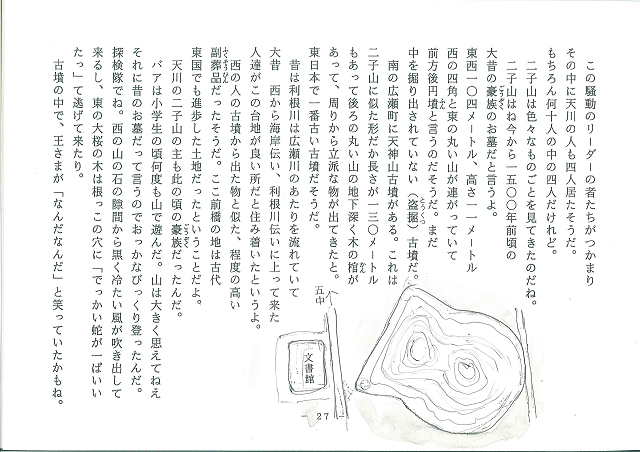 この騒動のリーダーの者たちがつかまり
その中に天川の人も四人居たそうだ。
もちろん何十人の中の四人だけれど。
二子山は色々なものごとを見てきたのだね。
二子山はね今から一五〇〇年前頃の
大昔の豪族のお墓だと言うよ。
ごうぞく
東西一〇四メートル、高さ一一メートル
西の四角と東の丸い山が連がっていて
前方後円墳と言うのだそうだ。まだ
ふん
中を掘り出されていない（盗掘）古墳だ。
とうくつ
南の広瀬町に天神山古墳がある。これは
二子山に似た形だか長さが一三〇メートル
もあって後ろの丸い山の地下深く木の棺が
かん
あって、周りから立派な物が出てきたと。
東日本で一番古い古墳だそうだ。
昔は利根川は広瀬川のあたりを流れていて
大昔　西から海岸伝い、利根川伝いに上って来た
人達がこの台地が良い所だと住み着いたというよ。
西の人の古墳から出た物と似た、程度の高い
副葬品だったそうだ。ここ前橋の地は古代
ふくそうひん
東国でも進歩した土地だったということだよ。
天川の二子山の主も此の頃の豪族だったんだ。
ごうぞく
バアは小学生の頃何度も山で遊んだ。山は大きく思えてねえ
それに昔のお墓だって言うのでおっかなびっくり登ったんだ。
探検隊でね。西の山の石の隙間から黒く冷たい風が吹き出して
来るし、東の大桜の木は根っこの穴に「でっかい蛇が一ぱいい
たっ」て逃げて来たり。
古墳の中で、王さまが「なんだなんだ」と笑っていたかもね。
五中
文書館
- 27 -